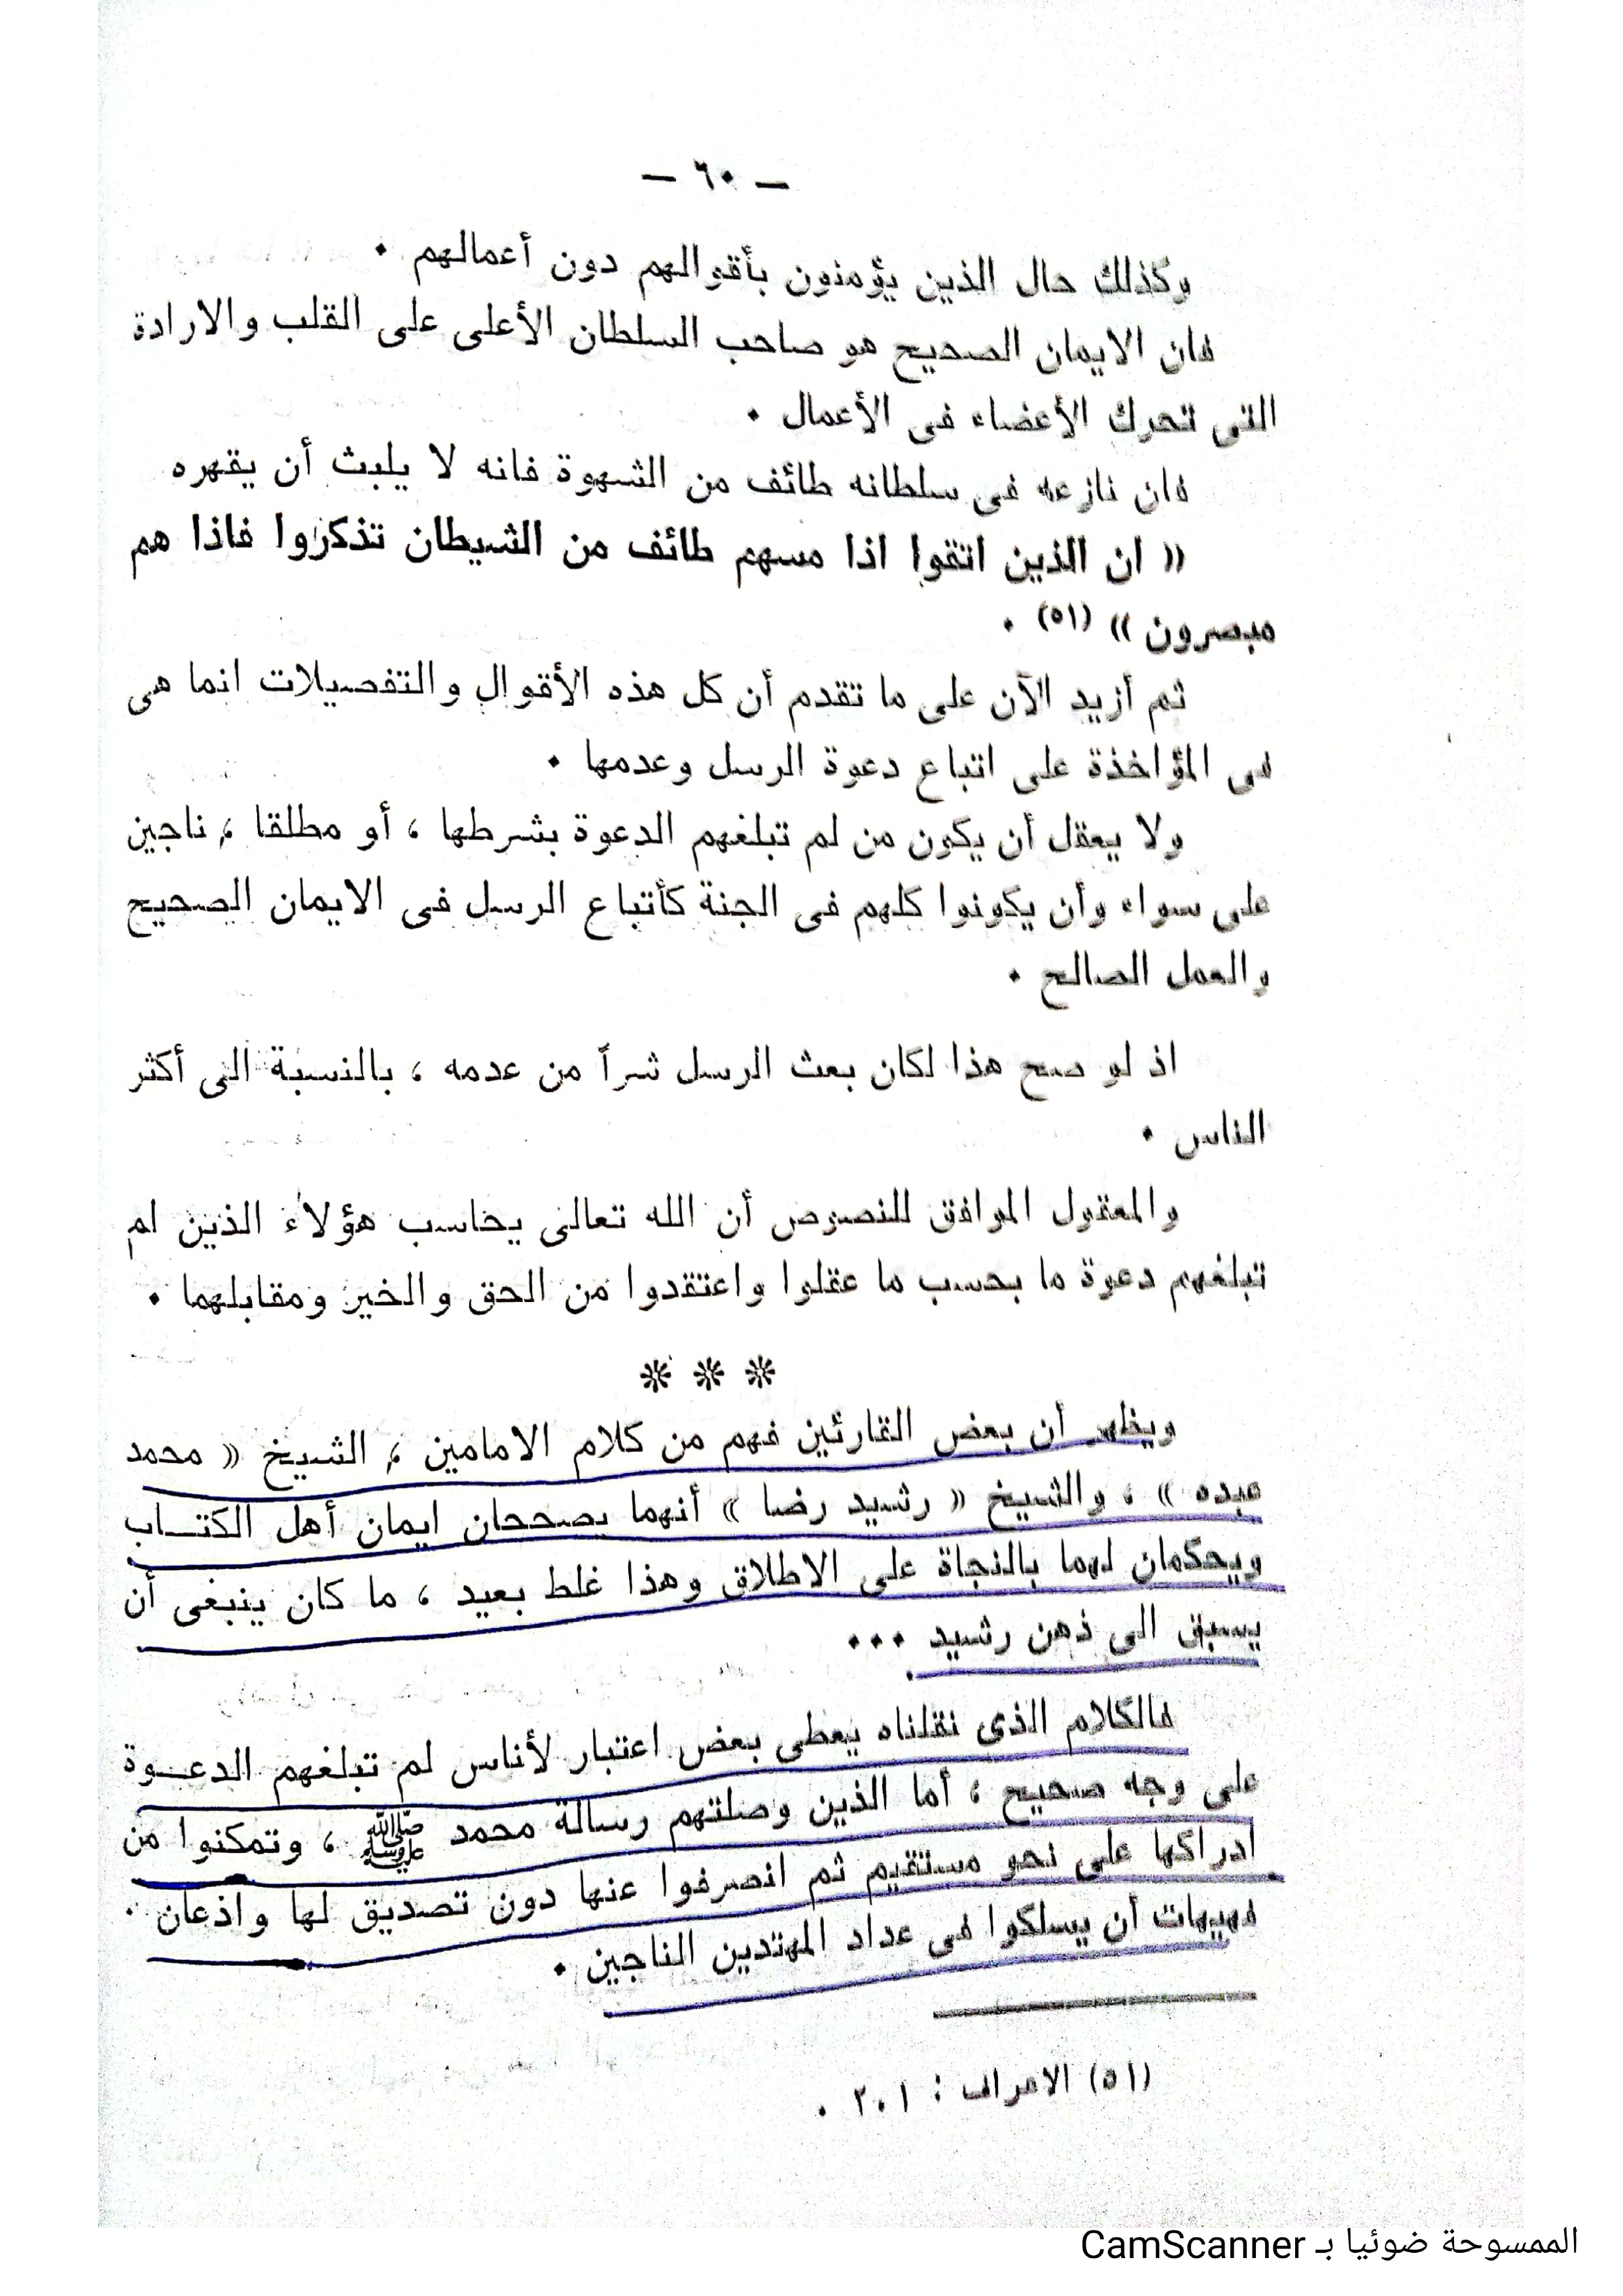 — ٦٠ —
وكذلك حال الذين يؤمنون بأقوالهم دون أعمالهم ٠
فان الايمان الصحيح هو صاحب السلطان الأعلى على القلب والارادة
التى تحرك الأعضاء فى الأعمال ٠
فان نازعه فى سلطانه طائف من الشهوة فانه لا يلبث أن يقهره
« ان الذين اتقوا اذا مسهم طائف من الشيطان تذكروا فاذا هم
مبصرون » (٥١) ٠
ثم أزيد الآن على ما تقدم أن كل هذه الأقوال والتفصيلات انما هى
فى المؤاخذة على اتباع دعوة الرسل وعدمها ٠
ولا يعقل أن يكون من لم تبلغهم الدعوة بشرطها ، أو مطلقا ، ناجين
على سواء وأن يكونوا كلهم فى الجنة كأتباع الرسل فى الايمان الصحيح
والعمل الصالح ٠
اذ لو صح هذا لكان بعث الرسل شراً من عدمه ، بالنسبة الى أكثر
الناس ٠
والمعقول الموافق للنصوص أن الله تعالى يحاسب هؤلاء الذين لم
تبلغهم دعوة ما بحسب ما عقلوا واعتقدوا من الحق والخير ومقابلهما ٠
❊ ❊ ❊
ويظهر أن بعض القارئين فهم من كلام الامامين ، الشيخ « محمد
عبده » ، والشيخ « رشيد رضا » أنهما يصححان ايمان أهل الكتـــاب
ويحكمان لهما بالنجاة على الاطلاق وهذا غلط بعيد ، ما كان ينبغى أن
يسبق الى ذهن رشيد ٠٠٠
فالكلام الذى نقلناه يعطى بعض اعتبار لأناس لم تبلغهم الدعــوة
على وجه صحيح ؛ أما الذين وصلتهم رسالة محمد ﷺ ، وتمكنوا من
ادراكها على نحو مستقيم ثم انصرفوا عنها دون تصديق لها واذعان ٠
فهيهات أن يسلكوا فى عداد المهتدين الناجين ٠
(٥١) الاعراف : ٢٠١ ٠
الممسوحة ضوئيا بـ CamScanner